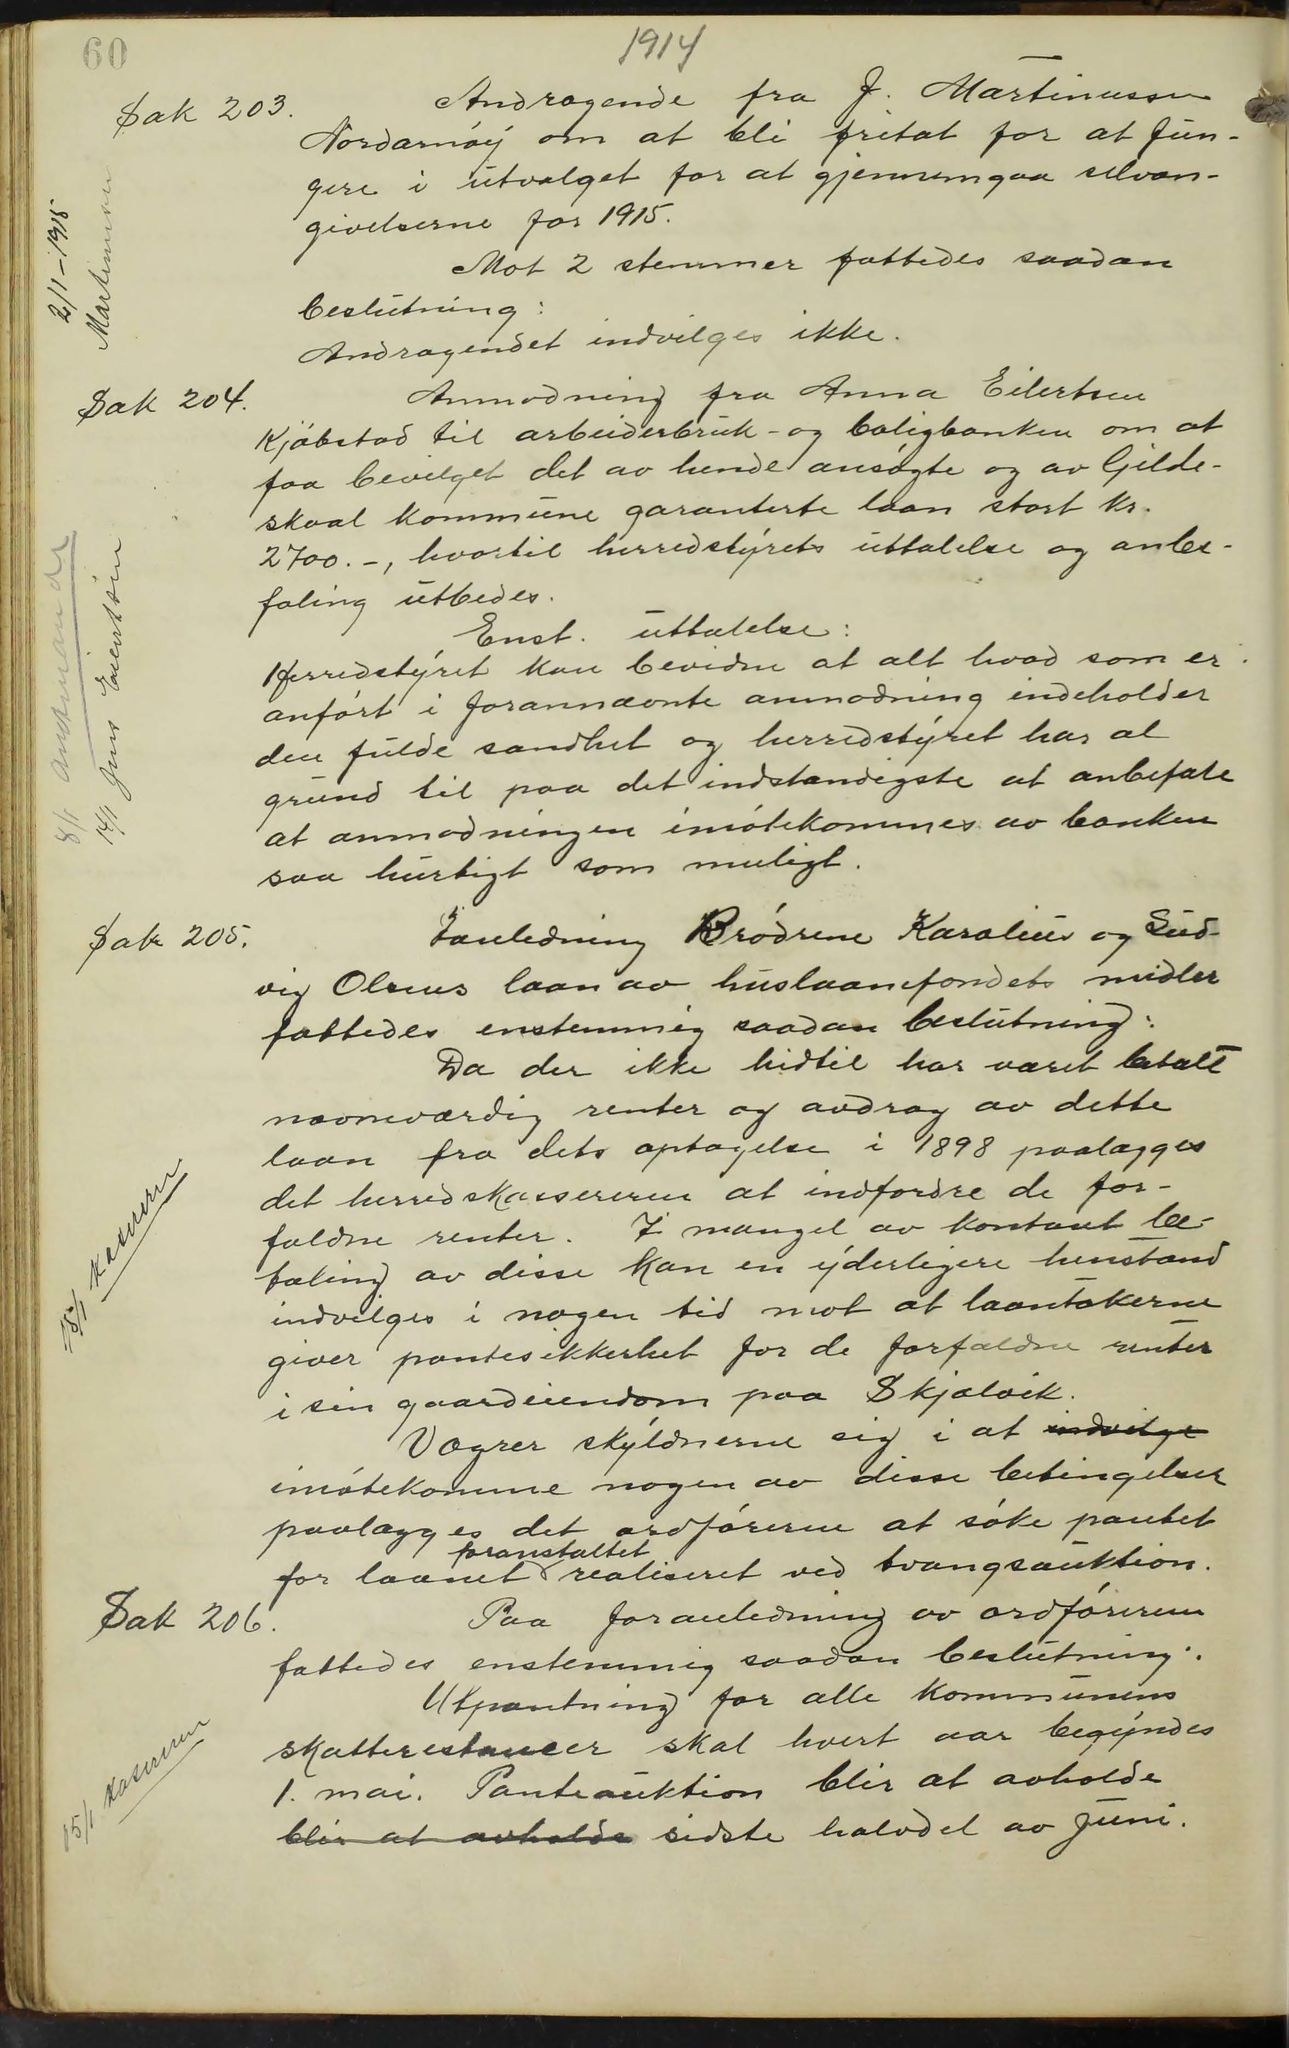 60
1914
Sak 203.
Andragende fra J. Martinussen
Nordarnøy om at bli fritat for at fun-
gere i utvalget for at gjennemgaa selvan-
givelserne for 1915.
Mot 2 stemmer fattedes saadan
beslutning:
Andragendet indvilges ikke.
2/1-1915
Martinussen
Sak 204.
Anmodning fra Anna Eilertsen
Kjøbstad til arbeiderbruk- og boligbanken om at
faa bevilget det av hende ansøgte og av Gilde-
skaal kommune garanterte laan stort kr.
2700.-, hvortil herredstyrets uttalelse og anbe-
faling utbedes.
Enst. uttalelse:
Herredstyret kan bevidne at alt hvad som er
anført i forannævnte anmodning indeholder
den fulde sandhet og herredstyret har al
grund til paa det indstændigste at anbefale
at anmodningen imøtekommes av banken
saa hurtigt som muligt.
8/1
14/1 Jens Eilertsen
Sak 205.
I anledning Brødrene Karolius og Lud-
vig Olsens laan av huslaanefondets midler
fattedes enstemmig saadan beslutning:
Da der ikke hidtil har været betalt
nævneværdig renter og avdrag av dette
laan fra dets optagelse i 1898 paalægges
det herredskassereren at indfordre de for-
faldne renter. I mangel av kontant be-
taling av disse kan en yderligere henstand
indvilges i nogen tid mot at laantakerne
giver pantesikkerhet for de forfaldne renter
i sin gaardeiendom paa Skjelvik.
Vægrer skyldnerne sig i at indvilge
imøtekomme nogen av disse betingelser
paalægges det ordføreren at søke pantet
foranstaltet
for laanet realiseret ved tvangsauktion.
15/1 Kasserern
Sak 206.
Paa foranledning av ordføreren
fattedes enstemmig saadan beslutning:
Utpantning for alle kommunens
skatterestancer skal hvert aar begyndes
1. mai. Panteauktion blir at avholde
blir at avholde sidste halvdel av juni.
15/1 Kasserern